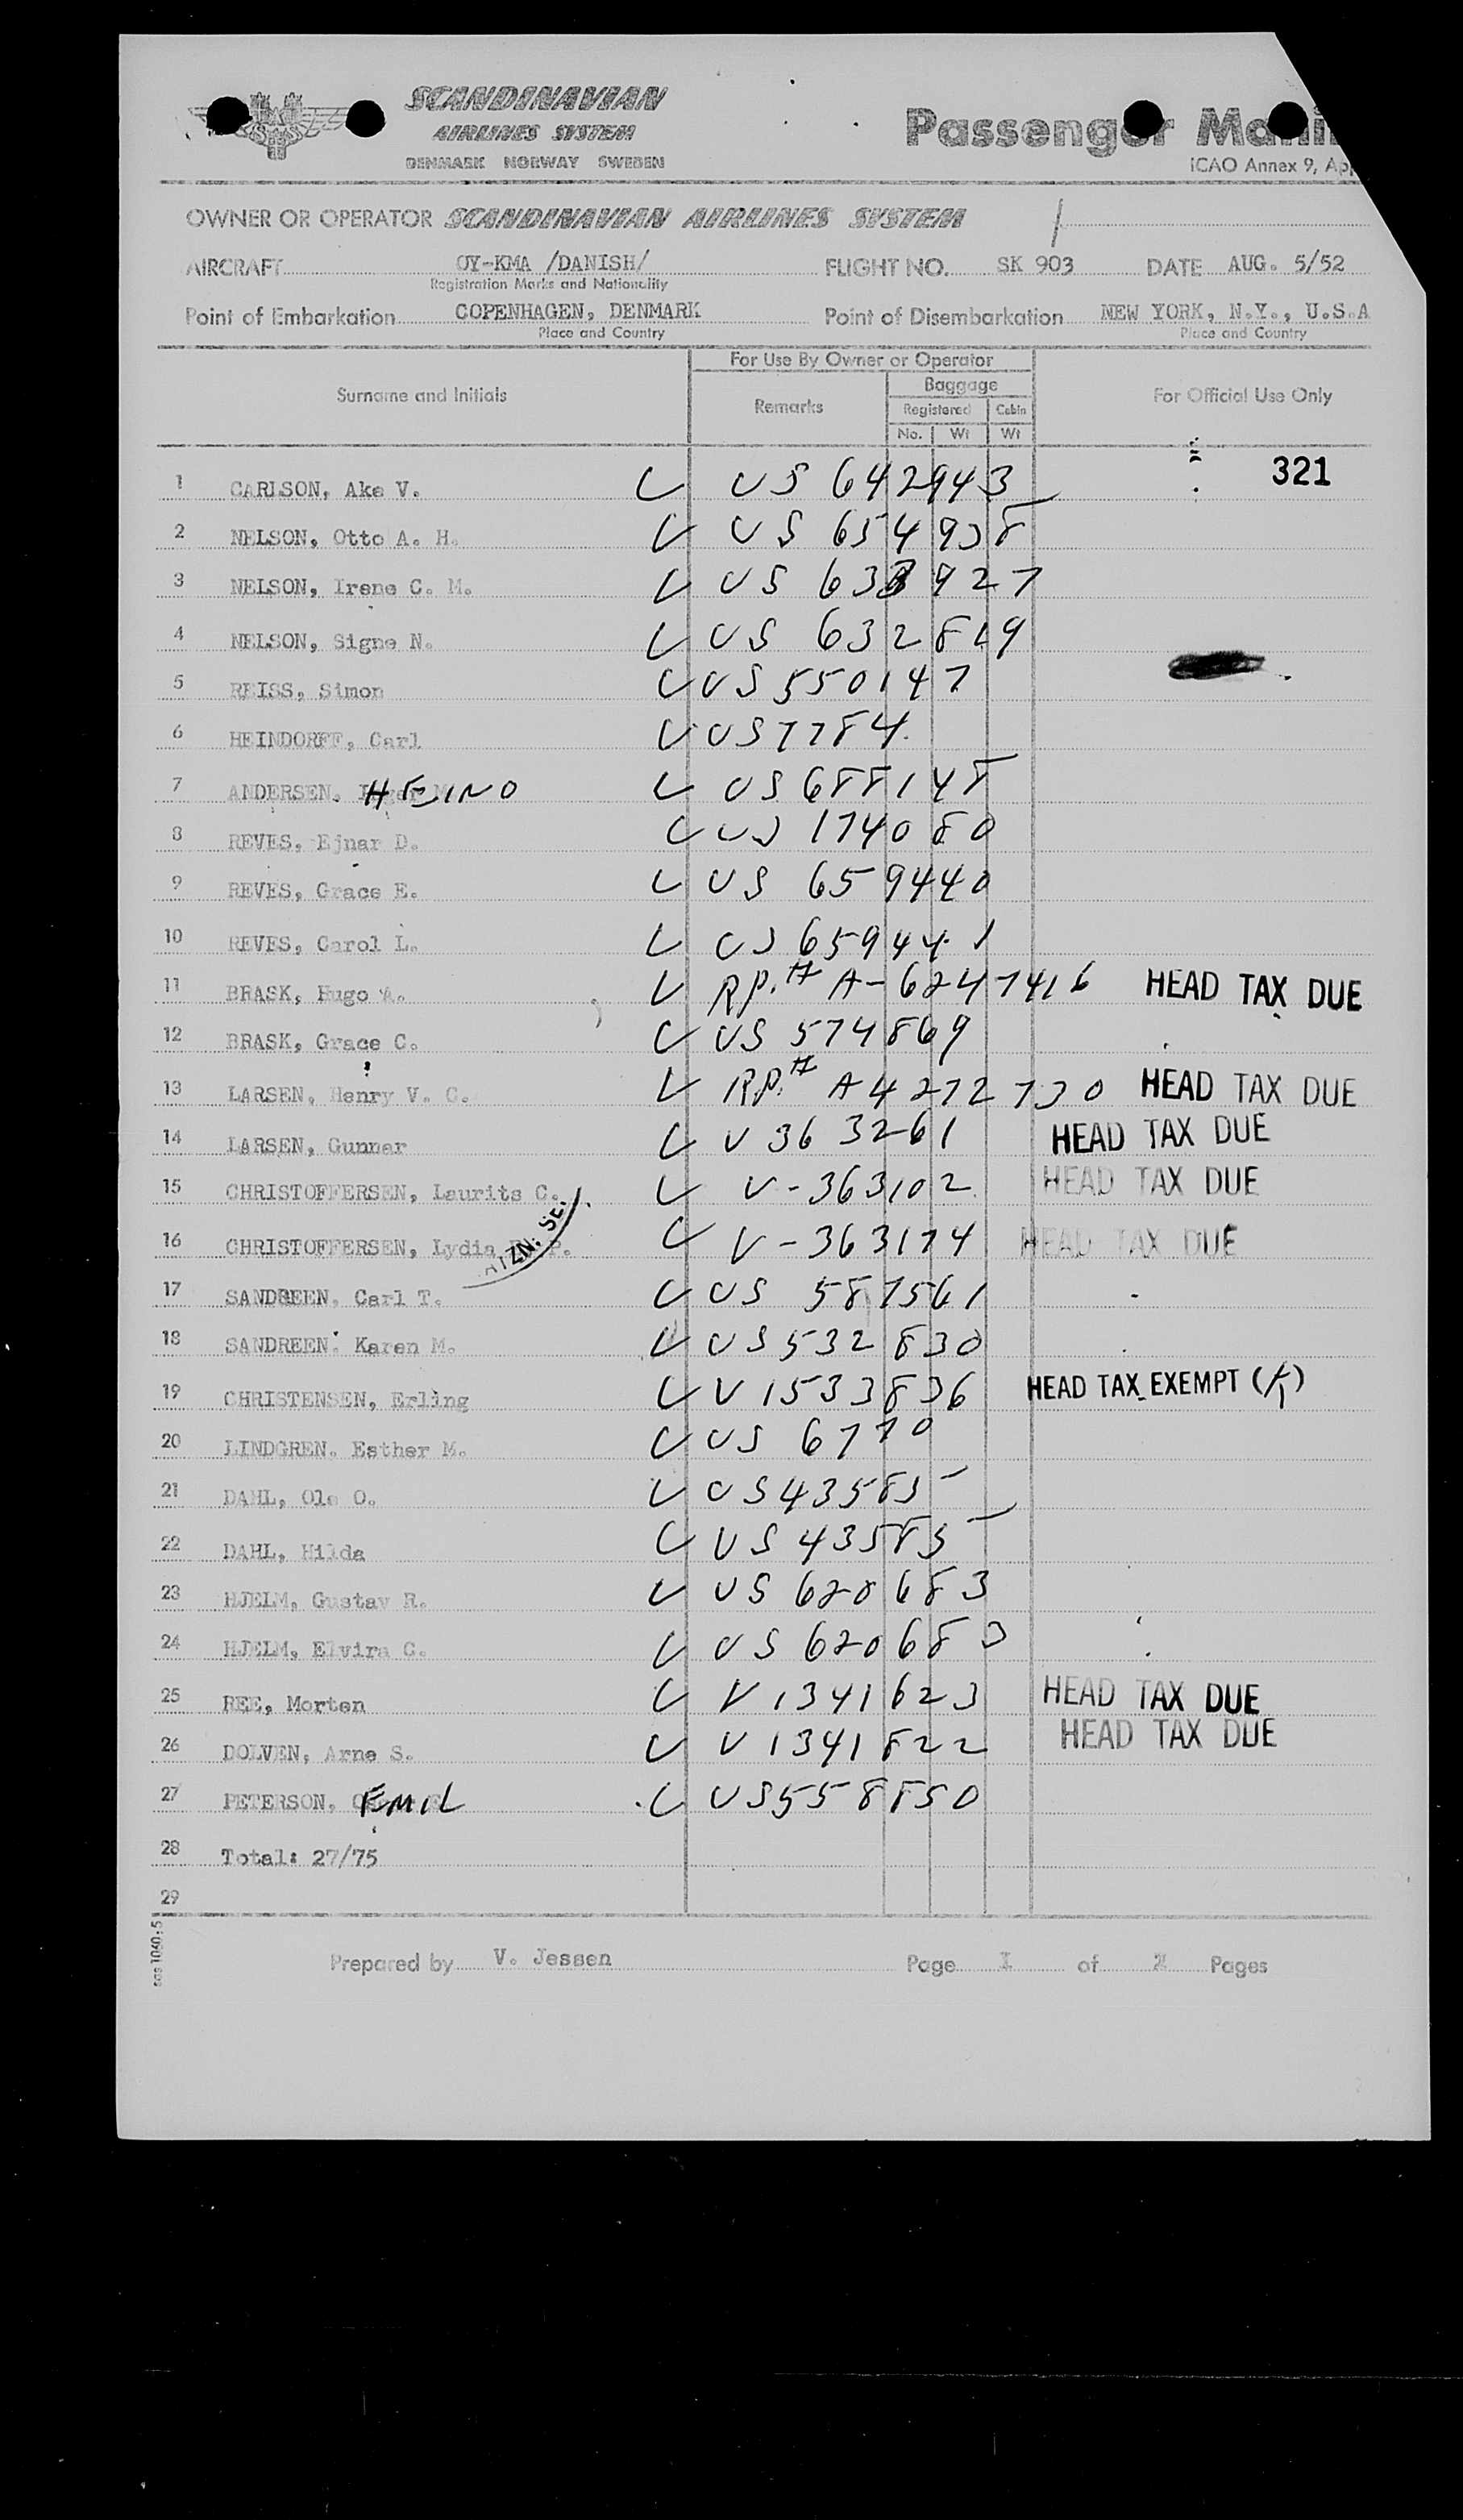 SCANDINAVIAN
AIRLINES SYSTEM
DENMARK NORWAY SWEDEN
SAS
Passenger Mani
ICAO Annex 9, App
OWNER OR OPERATOR SCANDINAVIAN AIRLINES SYSTEM
AIRCRAFT OY-KMA /DANISH/ FLIGHT NO. SK 903 DATE AUG. 5/52
Registration Marks and Nationality
Point of Embarkation COPENHAGEN, DENMARK Point of Disembarkation NEW YORK, N.Y., U.S.A
Place and Country Place and Country
For Use By Owner or Operator
Surname and Initials Remarks Baggage For Official Use Only
Registered Cabin
No. Wt Wt
321
1 CARLSON, Ake V. US 642943
2 NELSON, Otto A. H. US 654938
3 NELSON, Irene C. M. US 638927
4 NELSON, Signe N. US 632819
5 REISS, Simon US 550147
6 HEINDORFF, Carl US 7784
7 ANDERSEN. HEINO US 688148
8 REVES, Ejnar D. US 174080
9 REVES, Grace E. US 659440
10 REVES, Carol L. US 659441
11 BRASK, Hugo A. RP.# A-6247416 HEAD TAX DUE
12 BRASK, Grace C. US 574869
13 LARSEN, Henry V. C. RP.# A4272730 HEAD TAX DUE
14 LARSEN, Gunnar V 363261 HEAD TAX DUE
15 CHRISTOFFERSEN, Laurits C. V-363102 HEAD TAX DUE
16 CHRISTOFFERSEN, Lydia P. V-363174 HEAD TAX DUE
17 SANDREEN. Carl T. US 587561
18 SANDREEN. Karen M. US 532830
19 CHRISTENSEN, Erling V 1533836 HEAD TAX EXEMPT (K)
20 LINDGREN. Esther M. US 6770
21 DAHL, Ole O. US 43585
22 DAHL, Hilda US 43585
23 HJELM, Gustav R. US 620683
24 HJELM, Elvira C. US 620683
25 REE, Morten V 1341623 HEAD TAX DUE
26 DOLVEN, Arne S. V 1341822 HEAD TAX DUE
27 PETERSON, EMIL US 558850
28 Total: 27/75
29
sas 1060:5
Prepared by V. Jessen Page I of 2 Pages